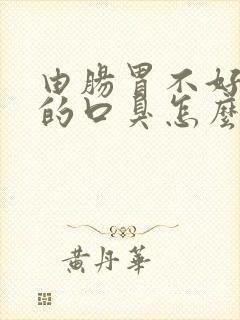 由腸胃不好
的口臭怎麼
黃丹華